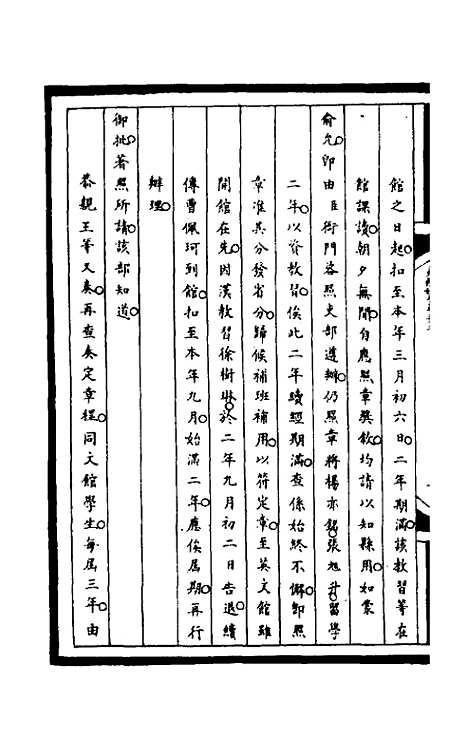 館之日起扣至本年三月初六日二年期滿該教習等在
館課讀朝夕無閒自應照章獎敘均請以知縣用如蒙
俞允即由臣衙門咨照吏部遵辦仍照章將楊亦銘張旭升留學
二年以資教習俟此二年續經期滿查係始終不懈即照
章准其分發省分歸候補班補用以符定章至英文館雖
開館在先因漢教習徐樹琳於二年九月初二日告退續
傳曹佩珂到館扣至本年九月始滿二年應俟屆期再行
辦理
御批著照所請該部知道
恭親王等又奏再查奏定章程同文館學生每屆三年由